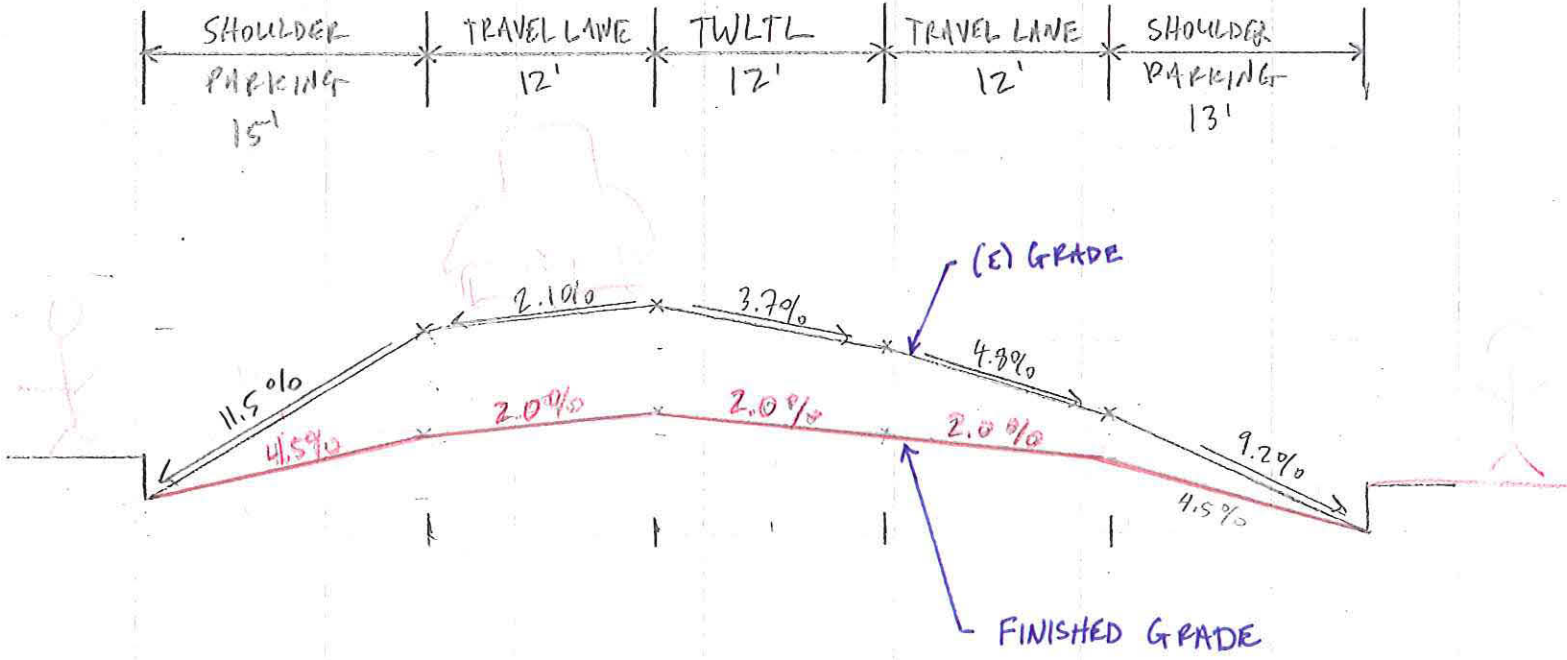 SHOULDER
PARKING
15'
TRAVEL LANE
12'
TWLTL
12'
TRAVEL LANE
12'
SHOULDER
PARKING
13'
(E) GRADE
11.5%
2.1%
3.7%
4.8%
9.2%
4.5%
2.0%
2.0%
2.0%
4.5%
FINISHED GRADE